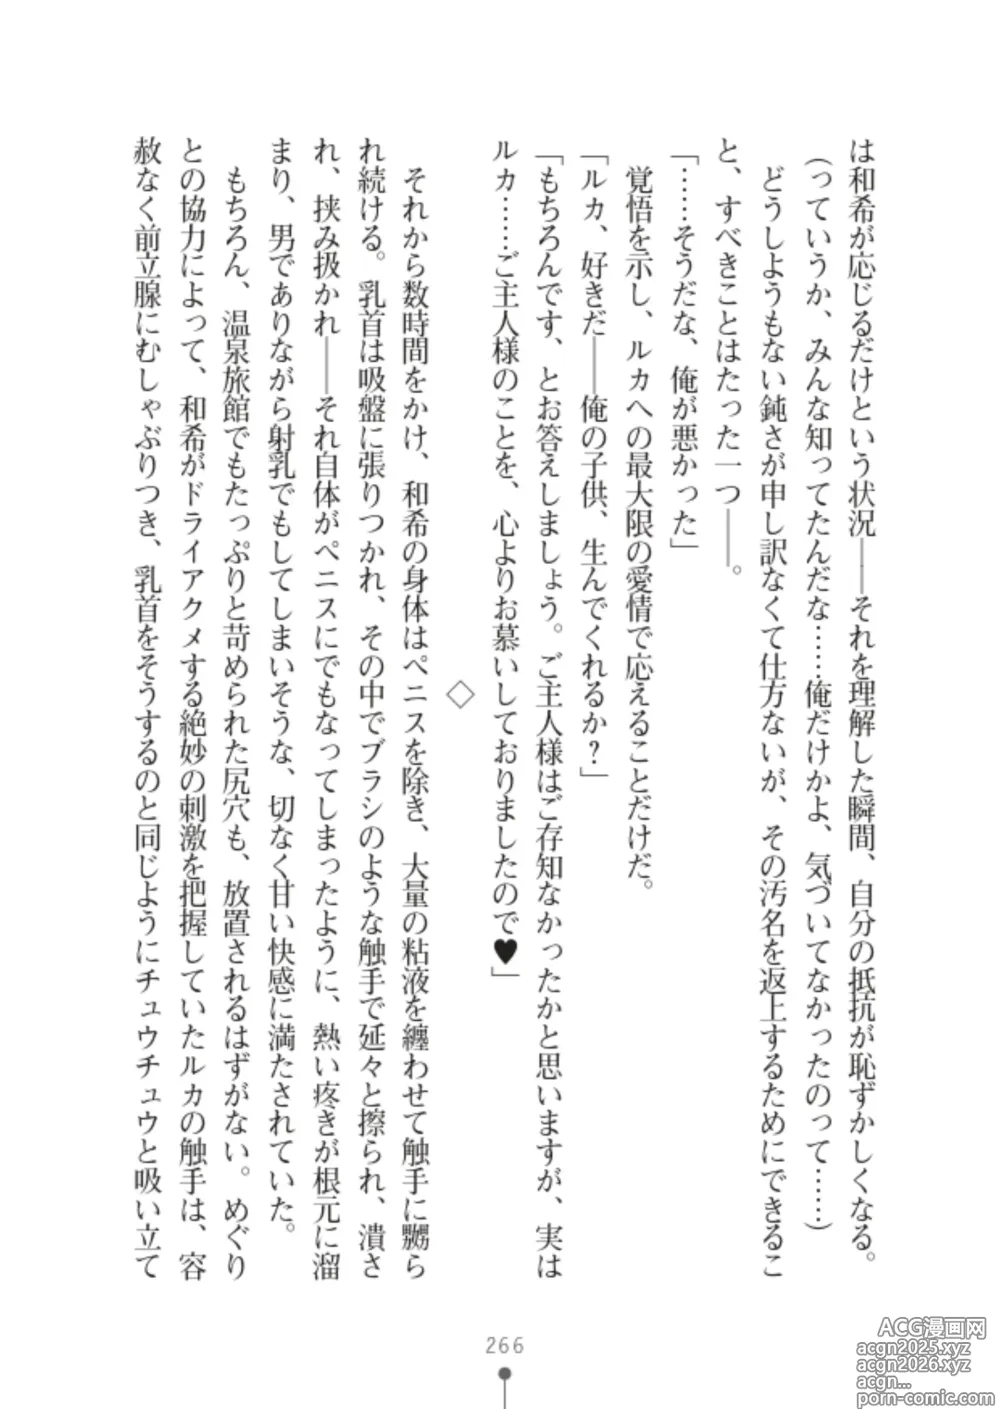 は和希が応じるだけという状況――それを理解した瞬間、自分の抵抗が恥ずかしくなる。
（っていうか、みんな知ってたんだな……俺だけかよ、気づいてなかったのって……）
どうしようもない鈍さが申し訳なくて仕方ないが、その汚名を返上するためにできるこ
と、すべきことはたった一つ――。
「……そうだな、俺が悪かった」
覚悟を示し、ルカへの最大限の愛情で応えることだけだ。
「ルカ、好きだ――俺の子供、生んでくれるか？」
「もちろんです、とお答えしましょう。ご主人様はご存知なかったかと思いますが、実は
ルカ……ご主人様のことを、心よりお慕いしておりましたので♥」
◇
それから数時間をかけ、和希の身体はペニスを除き、大量の粘液を纏わせて触手に嬲ら
れ続ける。乳首は吸盤に張りつかれ、その中でブラシのような触手で延々と擦られ、潰さ
れ、挟み扱かれ――それ自体がペニスにでもなってしまったように、熱い疼きが根元に溜
まり、男でありながら射乳でもしてしまいそうな、切なく甘い快感に満たされていた。
もちろん、温泉旅館でもたっぷりと苛められた尻穴も、放置されるはずがない。めぐり
との協力によって、和希がドライアクメする絶妙の刺激を把握していたルカの触手は、容
赦なく前立腺にむしゃぶりつき、乳首をそうするのと同じようにチュウチュウと吸い立て
266
ACG漫画网
acgn2025.xyz
acgn2026.xyz
acgn...
porn-comic.com